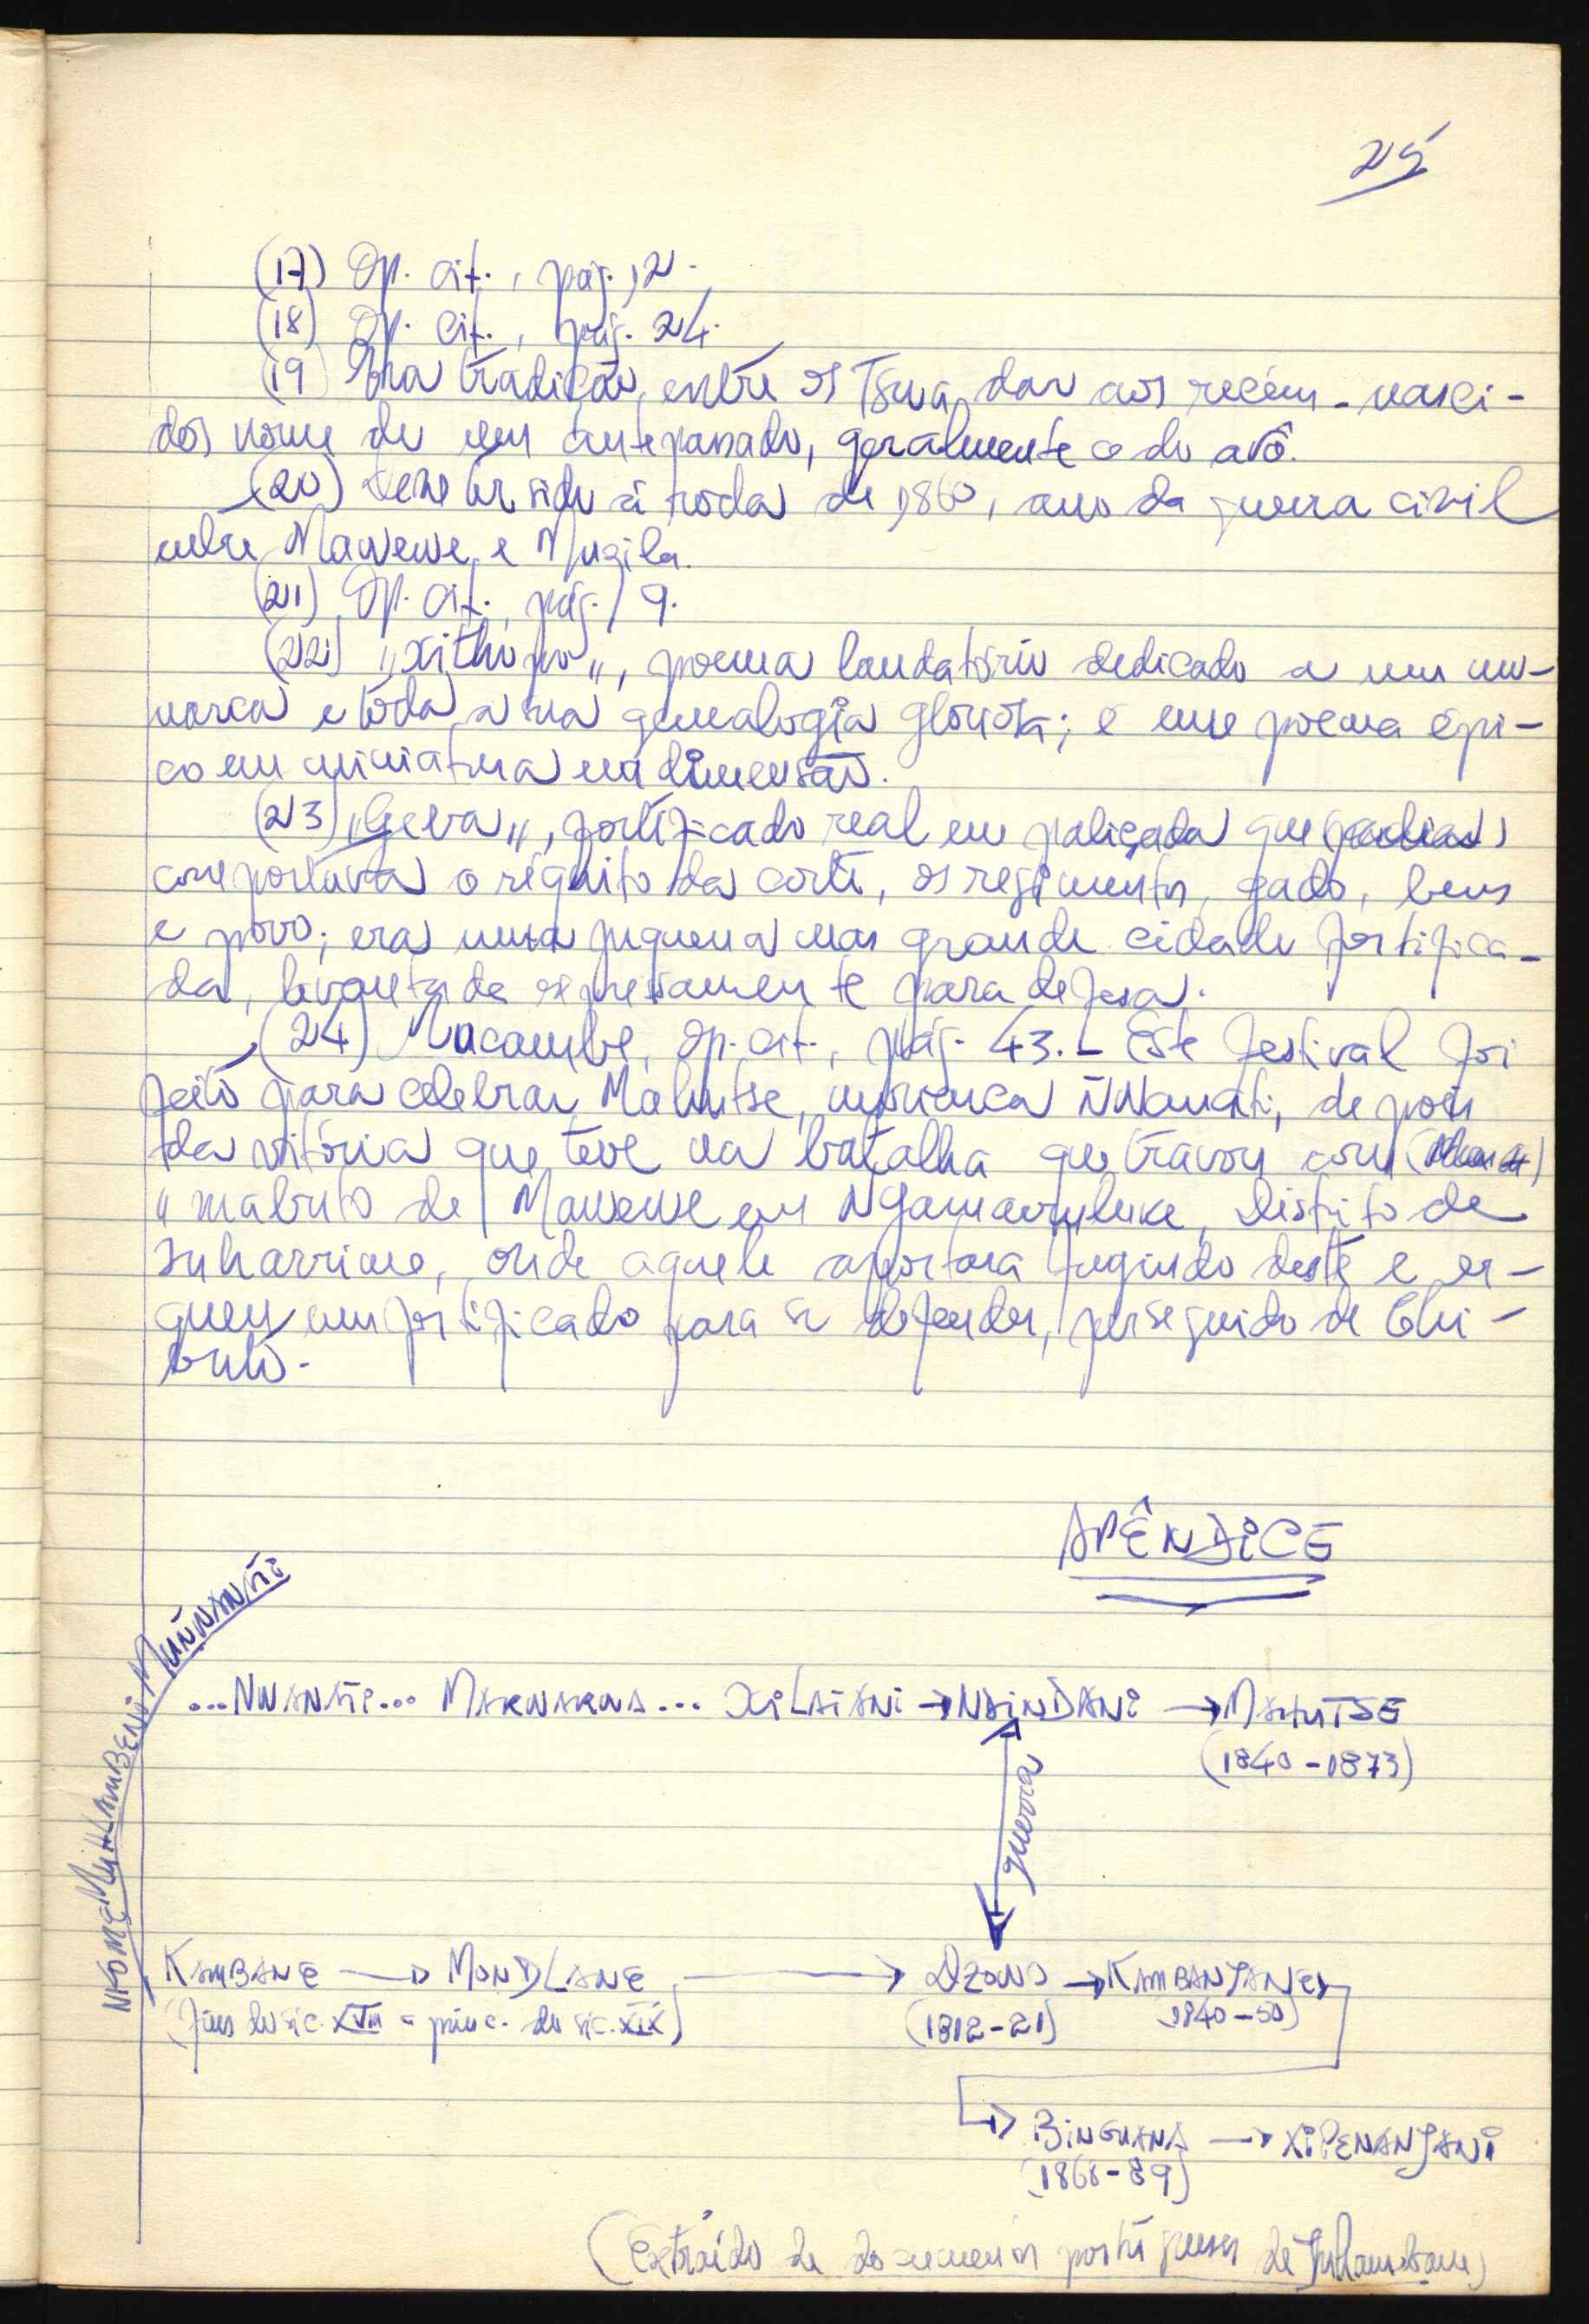 25
(17) Op. cit., pág. 12.
(18) Op. cit., pág. 24.
(19) Era tradição, entre os Tswa, dar aos recém-nasci-
dos nome de um antepassado, geralmente o do avô.
(20) Deve ter sido à roda de 1860, ano da guerra civil
entre Mawewe e Muzila.
(21) Op. cit., pág. 19.
(22) "Xithopo", poema laudatório dedicado a um mo-
narca e toda a sua genealogia gloriosa; é um poema épi-
co em miniatura na dimensão.
(23) "Gera", fortificado real em paliçada que
comportava o séquito da corte, os regimentos, gado, bens
e povo; era uma pequena mas grande cidade fortifica-
da, levantada expressamente para defesa.
(24) Macambe, op. cit., pág. 43. - Este festival foi
feito para celebrar Mahutse, monarca Ñwanati, depois
da vitória que teve na batalha que travou com
"mabuto de Mawewe em Ngamavuluke, Distrito de
Inharrime, onde aquele aportara fugindo deste e er-
gueu um fortificado para se defender, perseguido de Chi-
buto.
APÊNDICE
NKOME MUHLAMBENI MUÑWANATI
...NWANATI... MAKWAKWA... XILATANI → NSINDANI → MAHUTSE
(1840-1873)
guerra
KAMBANE → MONDLANE → DZOVO → KAMBANJANE
(fins do séc. XVIII a princ. do séc. XIX) (1812-21) (1840-50)
BINGUANA → XIPENANJANI
(1868-89)
(Extraído de documentos portugueses de Inhambane)